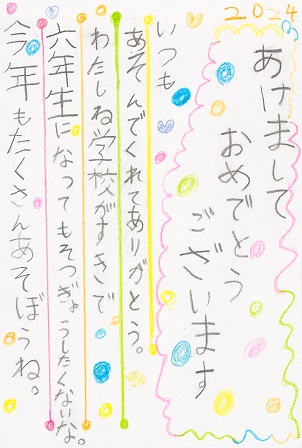 2024
あけまして
おめでとう
ございます
いつも
あそんでくれてありがとう。
わたしね学校がすきで
六年生になってもそつぎょうしたくないな。
今年もたくさんあそぼうね。